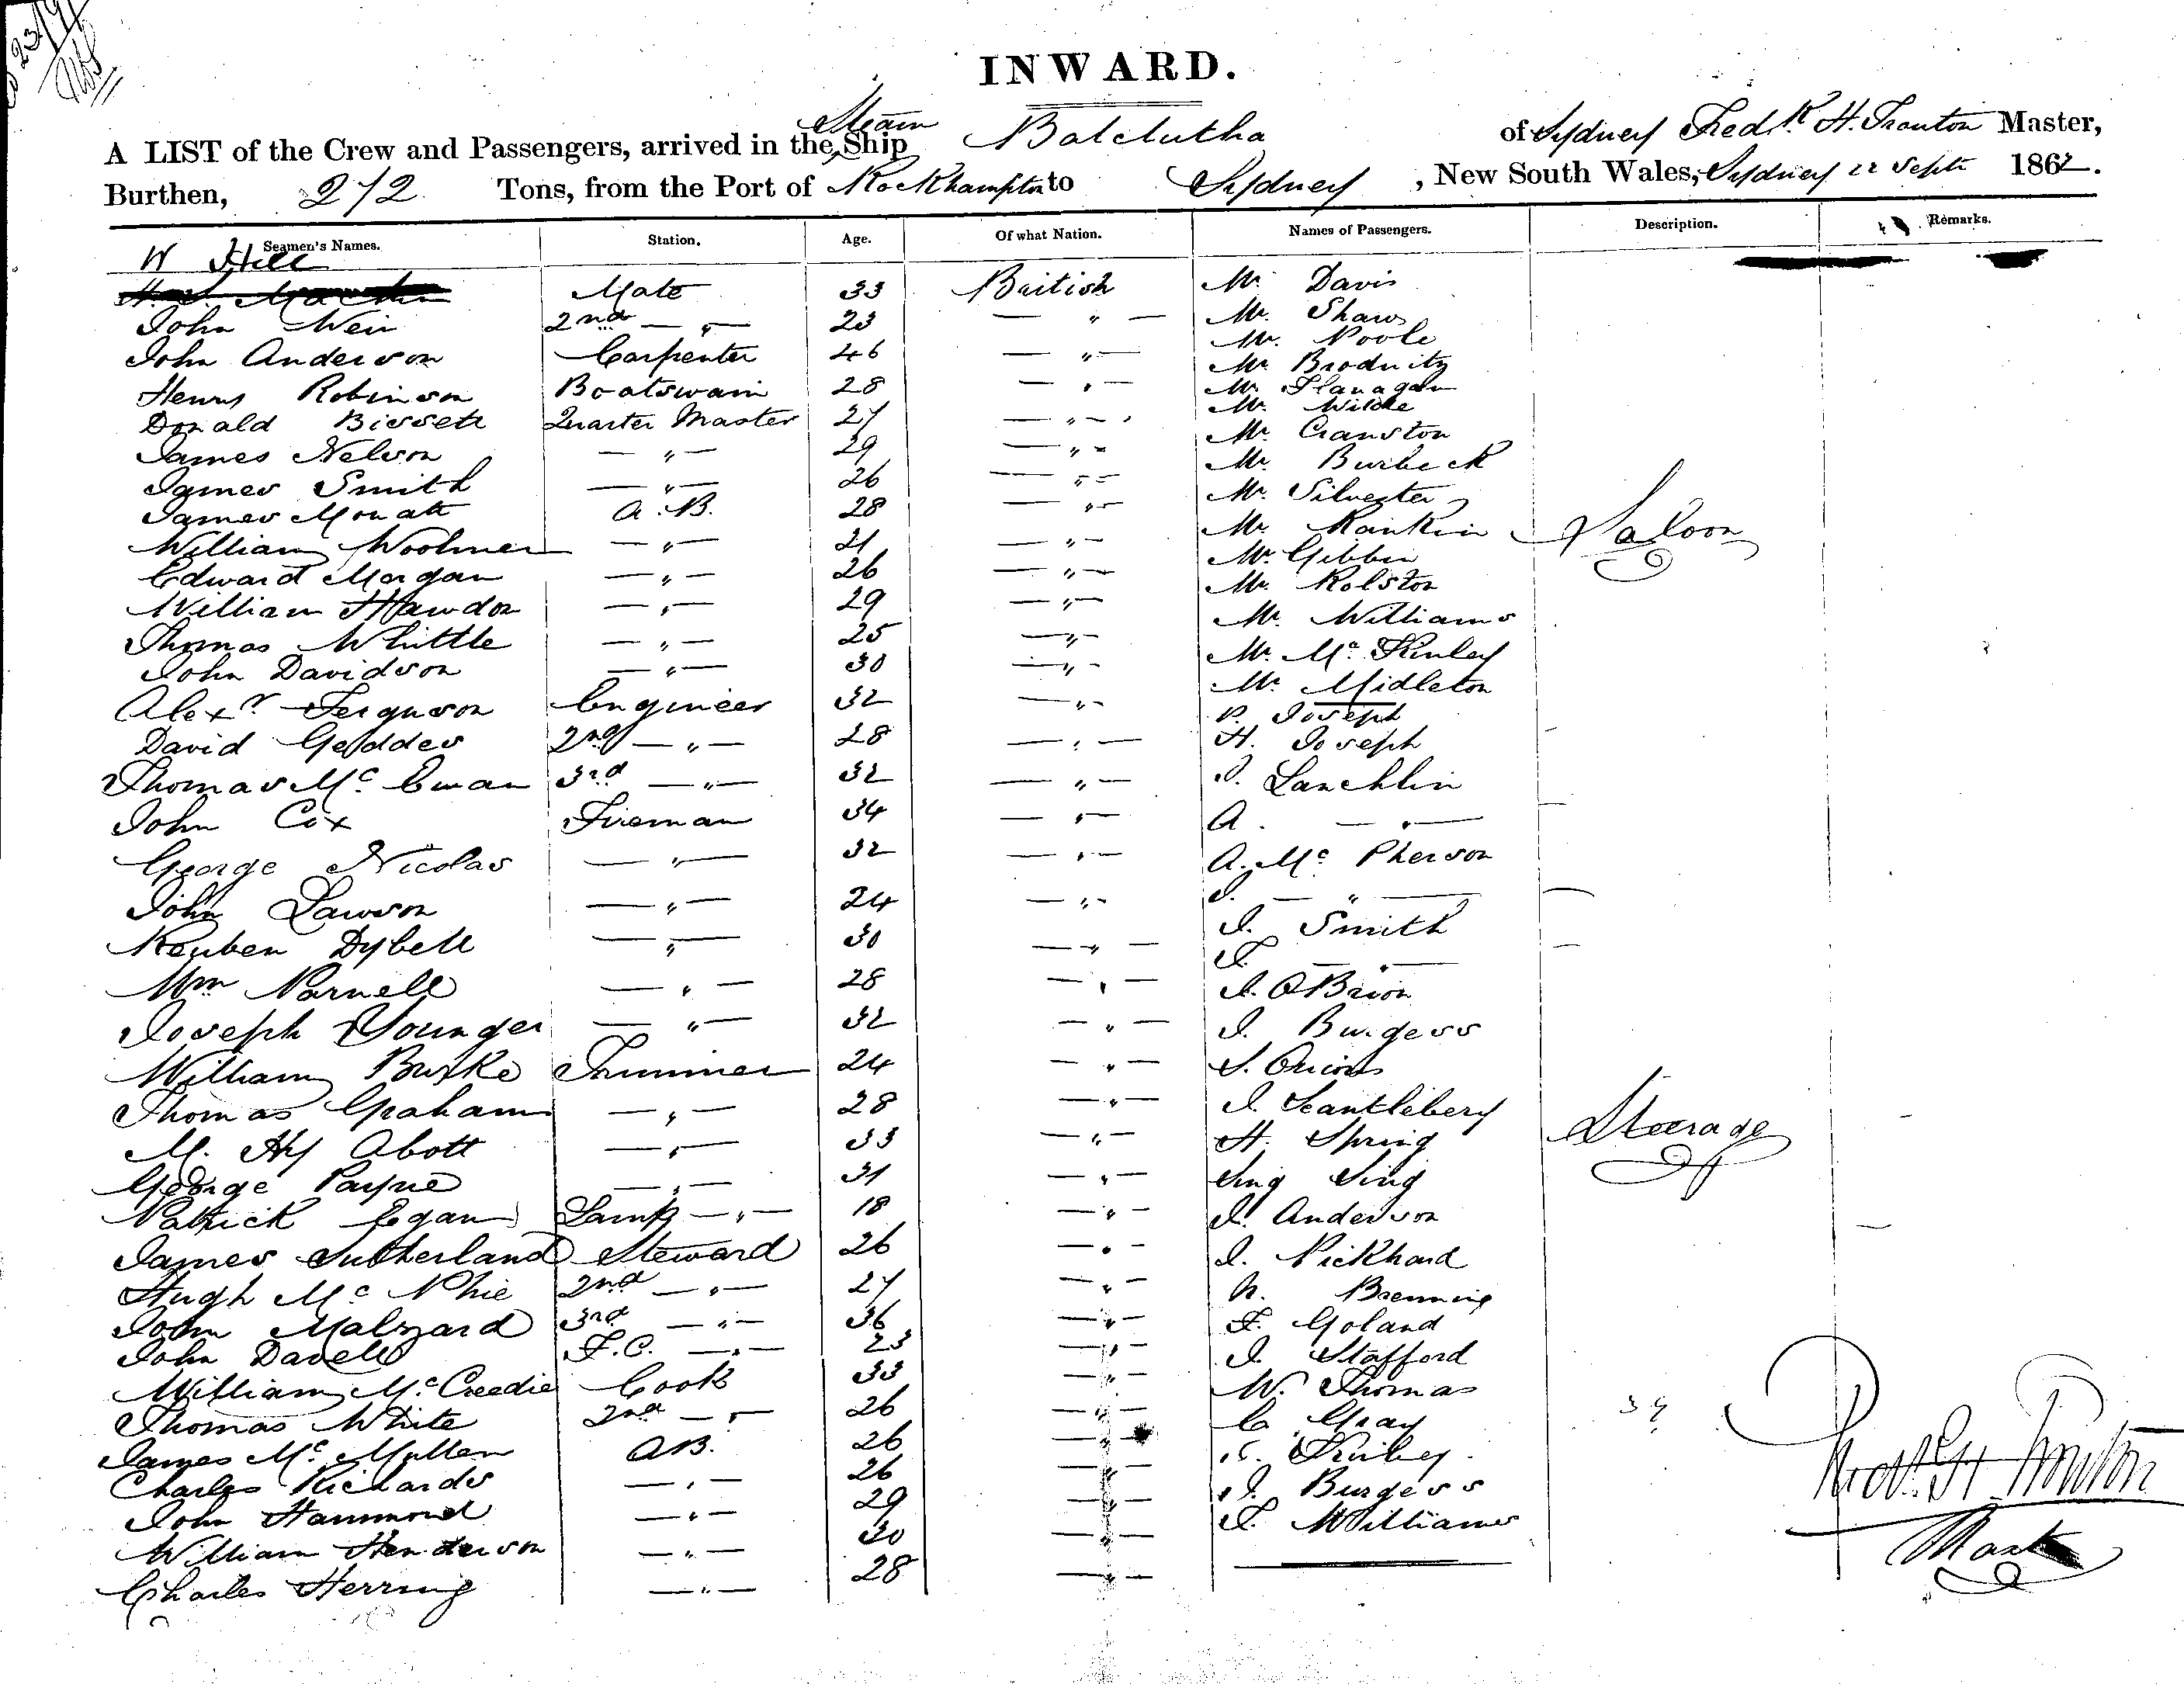 INWARD.
A LIST of the Crew and Passengers, arrived in the Steam Ship Balclutha of Sydney Fredk. H. Trouton Master,
Burthen, 272 Tons, from the Port of Rockhampton to Sydney, New South Wales, Sydney 22 Septr 1862.
Seamen's Names. Station. Age. Of what Nation. Names of Passengers. Description. Remarks.
W Hill
Mate 33 British Mr. Davis
John Weir 2nd — " — 23 — " — Mr. Shaw
John Anderson Carpenter 46 — " — Mr. Poole
Mr. Brodnitz
Henry Robinson Boatswain 28 — " — Mr. Flanagan
Mr. Wilde
Donald Bissett Quarter Master 27 — " — Mr. Cranston
James Nelson — " — 29 — " — Mr. Burbeck
James Smith — " — 26 — " — Mr. Silvester
James Mouatt A.B. 28 — " — Mr. Rankin Saloon
William Woolmer — " — 21 — " — Mr. Gibbin
Edward Morgan — " — 26 — " — Mr. Rolston
William Hawdon — " — 29 — " — Mr. Williams
Thomas Whittle — " — 25 — " — Mr. Mc Kinley
John Davidson — " — 30 — " — Mr. Midleton
Alexr. Ferguson Engineer 32 — " — P. Joseph
David Geddes 2nd — " — 28 — " — H. Joseph
Thomas Mc Ewan 3rd — " — 32 — " — J. Lauchlin
John Cox Fireman 34 — " — A. — " —
George Nicolas — " — 32 — " — A. Mc Pherson
John Lawson — " — 24 — " — J. — " —
J. Smith
Reuben Dybell — " — 30 — " — F. — " —
Wm Parnell — " — 28 — " — J. O'Brion
Joseph Younger — " — 32 — " — J. Burgess
William Burke Trimmer 24 — " — S. Orions
Thomas Graham — " — 28 — " — J. Scantlebery Stearage
M. Hy Abott — " — 33 — " — H. Spring
George Payne — " — 31 — " — Sing Sing
Patrick Egan Lamp — " — 18 — " — J. Anderson
James Sutherland Steward 26 — " — J. Pickhard
Hugh Mc Phie 2nd — " — 27 — " — Brenning
John Malzard 3rd — " — 36 — " — F. Goland
John Davell F.C. — " — 23 — " — J. Stafford
William Mc Creedie Cook 33 — " — W. Thomas
Thomas White 2nd — " — 26 — " — C. Gray 39
James Mc Mullen AB. 26 — " —
Charles Richards — " — 26 — " — J. Burgess
John Hammond — " — 29 — " — F. Williams
William Henderson — " — 30 — " —
Charles Herring — " — 28 — " —
Fredk. H. Trouton
Mast